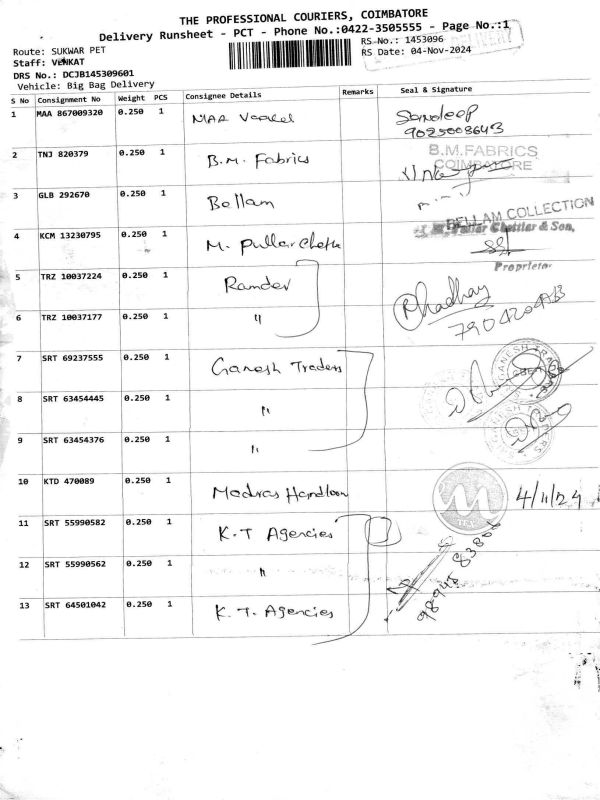 THE PROFESSIONAL COURIERS, COIMBATORE
Delivery Runsheet - PCT - Phone No.:0422-3505555 - Page No.:1
Route: SUKWAR PET
RS No.: 1453096
Staff: VENKAT
RS Date: 04-Nov-2024
DRS No.: DCJB145309601
Vehicle: Big Bag Delivery
S No Consignment No Weight PCS Consignee Details Remarks Seal & Signature
1 MAA 867009320 0.250 1 MAA Sandeep
9025008643
2 TNJ 820379 0.250 1 B.M. Fabrics B.M.FABRICS
COIMBATORE
3 GLB 292670 0.250 1 Bellam BELLAM COLLECTION
4 KCM 13230795 0.250 1 M. Pullar Chettiar & Son,
Proprietor
5 TRZ 10037224 0.250 1 Ramdev
6 TRZ 10037177 0.250 1 "
7 SRT 69237555 0.250 1 Ganesh Traders
8 SRT 63454445 0.250 1 "
9 SRT 63454376 0.250 1 "
10 KTD 470089 0.250 1 Madras Handloom M TEX 4/11/24
11 SRT 55990582 0.250 1 K.T Agencies
12 SRT 55990562 0.250 1 "
13 SRT 64501042 0.250 1 K.T. Agencies